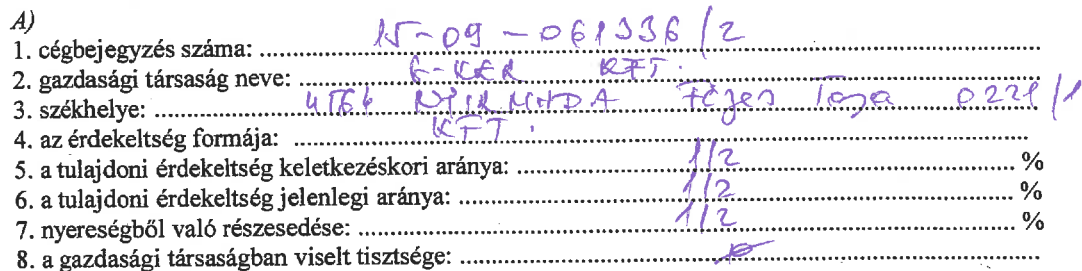 A)
1. cégbejegyzés száma: 15-09-061336/2
2. gazdasági társaság neve: KFT.
3. székhelye: 4564 NYÍRMADA 0221/1
4. az érdekeltség formája: KFT.
5. a tulajdoni érdekeltség keletkezéskori aránya: 1/2 %
6. a tulajdoni érdekeltség jelenlegi aránya: 1/2 %
7. nyereségből való részesedése: 1/2 %
8. a gazdasági társaságban viselt tisztsége: